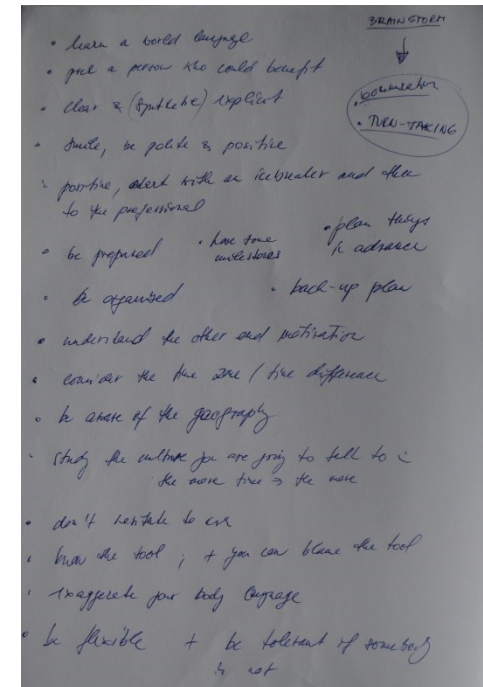 BRAINSTORM
• TURN-TAKING
• learn a world language
• pick a person who could benefit
• clear & (synthetic) explicit
• smile, be polite & positive
• positive, start with an icebreaker and then
to the professional
• be prepared
• have some
milestones
• plan things
in advance
• be organised
• back-up plan
• understand the other and motivation
• consider the time zone / time difference
• be aware of the geography
• study the culture you are going to talk to
the more time → the more
• don't hesitate to ask
• know the tool ; + you can blame the tool
• exaggerate your body language
• be flexible + be tolerant if somebody
is not